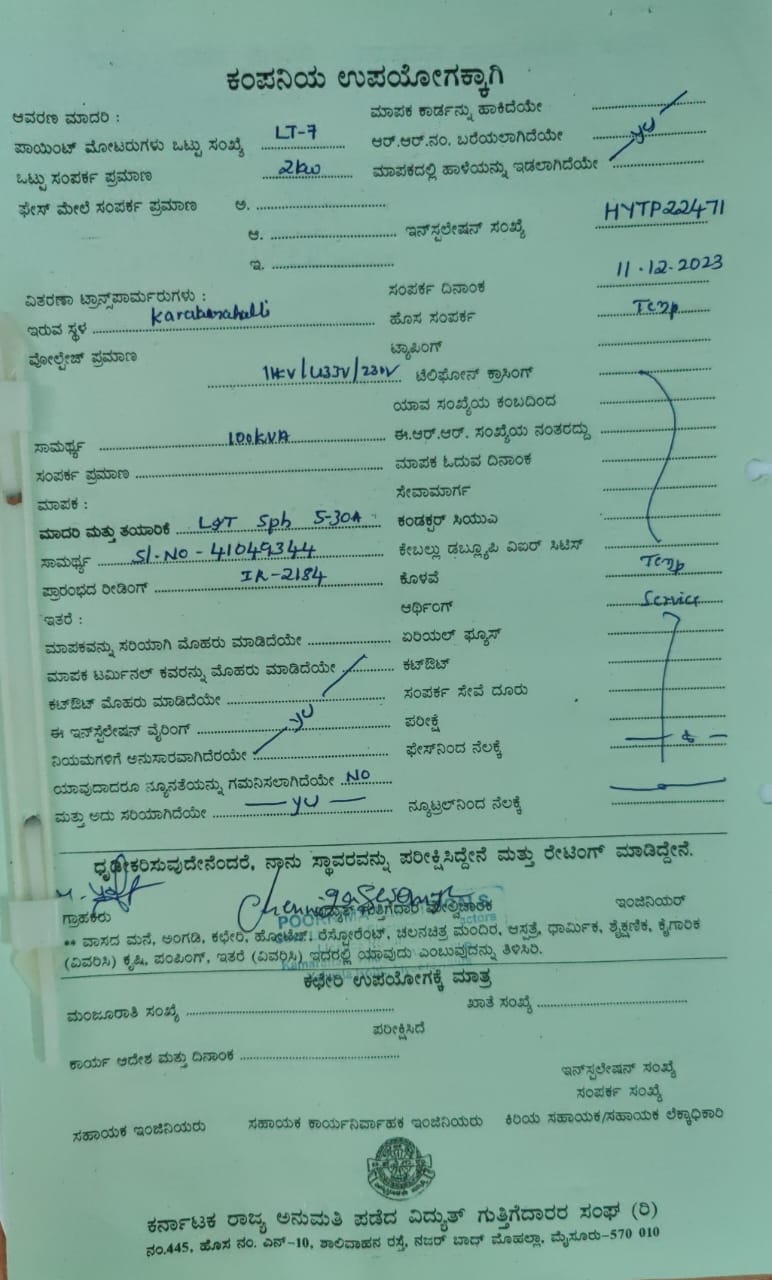 ಕಂಪನಿಯ ಉಪಯೋಗಕ್ಕಾಗಿ
ಆವರಣ ಮಾದರಿ : ಮಾಪಕ ಕಾರ್ಡನ್ನು ಹಾಕಿದೆಯೇ
ಪಾಯಿಂಟ್ ಮೋಟರುಗಳು ಒಟ್ಟು ಸಂಖ್ಯೆ LT-7 ಆರ್.ಆರ್.ನಂ. ಬರೆಯಲಾಗಿದೆಯೇ
ಒಟ್ಟು ಸಂಪರ್ಕ ಪ್ರಮಾಣ 2kw ಮಾಪಕದಲ್ಲಿ ಹಾಳೆಯನ್ನು ಇಡಲಾಗಿದೆಯೇ
ಫೇಸ್ ಮೇಲೆ ಸಂಪರ್ಕ ಪ್ರಮಾಣ ಅ.
ಆ. ಇನ್‌ಸ್ಪಲೇಷನ್ ಸಂಖ್ಯೆ HYTP22471
ಇ.
ವಿತರಣಾ ಟ್ರಾನ್ಸ್‌ಪಾರ್ಮರುಗಳು : ಸಂಪರ್ಕ ದಿನಾಂಕ 11.12.2023
ಇರುವ ಸ್ಥಳ ಹೊಸ ಸಂಪರ್ಕ Temp
ವೋಲ್ಟೇಜ್ ಪ್ರಮಾಣ ಟ್ಯಾಪಿಂಗ್
11kV/433V/230V ಟೆಲಿಫೋನ್ ಕ್ರಾಸಿಂಗ್
ಯಾವ ಸಂಖ್ಯೆಯ ಕಂಬದಿಂದ
ಸಾಮರ್ಥ್ಯ 100kVA ಈ.ಆರ್.ಆರ್. ಸಂಖ್ಯೆಯ ನಂತರದ್ದು
ಸಂಪರ್ಕ ಪ್ರಮಾಣ ಮಾಪಕ ಓದುವ ದಿನಾಂಕ
ಮಾಪಕ : ಸೇವಾಮಾರ್ಗ
ಮಾದರಿ ಮತ್ತು ತಯಾರಿಕೆ L&T Sph 5-30A ಕಂಡಕ್ಟರ್ ಸಿಯುಎ
ಸಾಮರ್ಥ್ಯ Sl.NO-41049344 ಕೇಬಲ್ಲು ಡಬ್ಲ್ಯೂಪಿ ವಿಐರ್ ಸಿಟಿಸ್
ಪ್ರಾರಂಭದ ರೀಡಿಂಗ್ IR-2184 ಕೊಳವೆ Temp
ಇತರೆ : ಆರ್ಥಿಂಗ್ Service
ಮಾಪಕವನ್ನು ಸರಿಯಾಗಿ ಮೊಹರು ಮಾಡಿದೆಯೇ ಏರಿಯಲ್ ಫ್ಯೂಸ್
ಮಾಪಕ ಟರ್ಮಿನಲ್ ಕವರನ್ನು ಮೊಹರು ಮಾಡಿದೆಯೇ ಕಟ್‌ಔಟ್
ಕಟ್‌ಔಟ್ ಮೊಹರು ಮಾಡಿದೆಯೇ ಸಂಪರ್ಕ ಸೇವೆ ದೂರು
ಈ ಇನ್‌ಸ್ಪೆಲೇಷನ್ ವೈರಿಂಗ್ ಪರೀಕ್ಷೆ
ನಿಯಮಗಳಿಗೆ ಅನುಸಾರವಾಗಿದೆರಯೇ ಫೇಸ್‌ನಿಂದ ನೆಲಕ್ಕೆ
ಯಾವುದಾದರೂ ನ್ಯೂನತೆಯನ್ನು ಗಮನಿಸಲಾಗಿದೆಯೇ NO
ಮತ್ತು ಅದು ಸರಿಯಾಗಿದೆಯೇ ನ್ಯೂಟ್ರಲ್‌ನಿಂದ ನೆಲಕ್ಕೆ
ಧೃಢೀಕರಿಸುವುದೇನೆಂದರೆ, ನಾನು ಸ್ಥಾವರವನ್ನು ಪರೀಕ್ಷಿಸಿದ್ದೇನೆ ಮತ್ತು ರೇಟಿಂಗ್ ಮಾಡಿದ್ದೇನೆ.
ಗ್ರಾಹಕರು ಇಂಜಿನಿಯರ್
** ವಾಸದ ಮನೆ, ಅಂಗಡಿ, ಕಛೇರಿ, ಹೋಟೆಲ್, ರೆಸ್ಟೋರೆಂಟ್, ಚಲನಚಿತ್ರ ಮಂದಿರ, ಆಸ್ಪತ್ರೆ, ಧಾರ್ಮಿಕ, ಶೈಕ್ಷಣಿಕ, ಕೈಗಾರಿಕ
(ವಿವರಿಸಿ) ಕೃಷಿ, ಪಂಪಿಂಗ್, ಇತರೆ (ವಿವರಿಸಿ) ಇದರಲ್ಲಿ ಯಾವುದು ಎಂಬುವುದನ್ನು ತಿಳಿಸಿರಿ.
ಕಛೇರಿ ಉಪಯೋಗಕ್ಕೆ ಮಾತ್ರ
ಮಂಜೂರಾತಿ ಸಂಖ್ಯೆ ಖಾತೆ ಸಂಖ್ಯೆ
ಪರೀಕ್ಷಿಸಿದೆ
ಕಾರ್ಯ ಆದೇಶ ಮತ್ತು ದಿನಾಂಕ
ಇನ್‌ಸ್ಪಲೇಷನ್ ಸಂಖ್ಯೆ
ಸಂಪರ್ಕ ಸಂಖ್ಯೆ
ಸಹಾಯಕ ಇಂಜಿನಿಯರು ಸಹಾಯಕ ಕಾರ್ಯನಿರ್ವಾಹಕ ಇಂಜಿನಿಯರು ಕಿರಿಯ ಸಹಾಯಕ/ಸಹಾಯಕ ಲೆಕ್ಕಾಧಿಕಾರಿ
ಕರ್ನಾಟಕ ರಾಜ್ಯ ಅನುಮತಿ ಪಡೆದ ವಿದ್ಯುತ್ ಗುತ್ತಿಗೆದಾರರ ಸಂಘ (ರಿ)
ನಂ.445, ಹೊಸ ನಂ. ಎನ್-10, ಶಾಲಿವಾಹನ ರಸ್ತೆ, ನಜರ್ ಬಾದ್ ಮೊಹಲ್ಲಾ, ಮೈಸೂರು-570 010